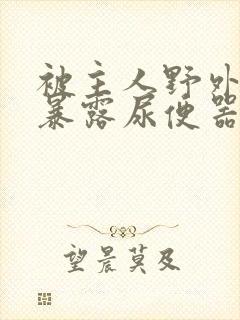 被主人野外
暴露尿便器
望晨莫及